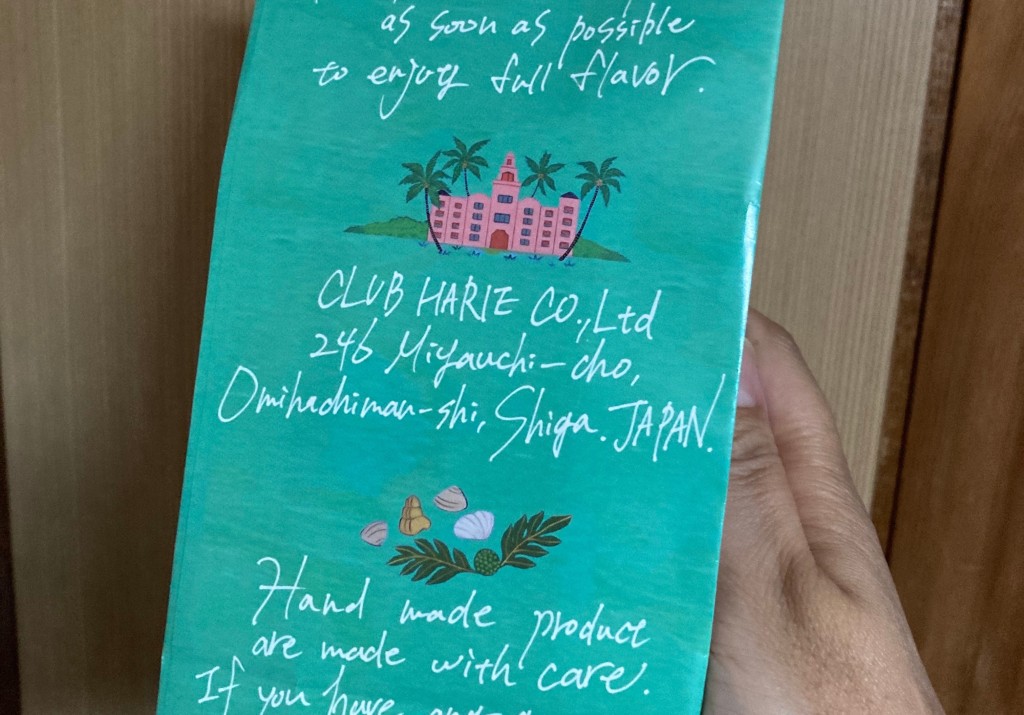 as soon as possible
to enjoy full flavor.
CLUB HARIE CO.,Ltd
246 Miyauchi-cho,
Omihachiman-shi, Shiga. JAPAN.
Hand made product
are made with care.
If you have any